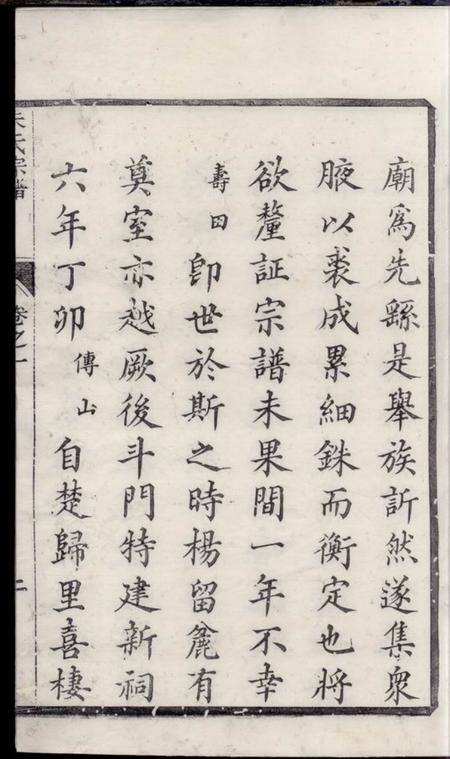 廟爲先繇是舉族訢然遂集衆
腋以裘成累細銖而衡定也將
欲釐証宗譜未果間一年不幸
壽田卽世於斯之時楊留龕有
奠室亦越厥後斗門特建新祠
六年丁卯傳山自楚歸里喜棲
朱氏宗譜 卷之一 二